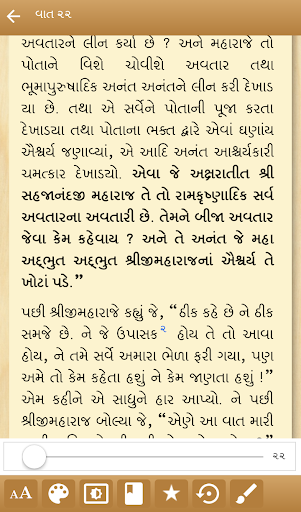 વાત ૨૨
અવતારને લીન કર્યા છે ? અને મહારાજે તો
પોતાને વિશે ચોવીશે અવતાર તથા
ભૂમાપુરુષાદિક અનંત અનંતને લીન કરી દેખાડ
યા છે. તથા એ સર્વેને પોતાની પૂજા કરતા
દેખાડયા તથા પોતાના ભક્ત દ્વારે એવાં ઘણાંય
ઐશ્વર્ય જણાવ્યાં, એ આદિ અનંત આશ્ચર્યકારી
ચમત્કાર દેખાડયો. એવા જે અક્ષરાતીત શ્રી
સહજાનંદજી મહારાજ તે તો રામકૃષ્ણાદિક સર્વ
અવતારના અવતારી છે. તેમને બીજા અવતાર
જેવા કેમ કહેવાય ? અને તે અનંત જે મહા
અદ્ભુત અદ્ભુત શ્રીજીમહારાજનાં ઐશ્વર્ય તે
ખોટાં પડે.”
પછી શ્રીજીમહારાજે કહ્યું જે, “ઠીક કહે છે ને ઠીક
સમજે છે. ને જે ઉપાસક૨ હોય તે તો આવા
હોય, ને તમે સર્વે અમારા ભેળા ફરી ગયા, પણ
અમે તો કેમ કહેતા હશું ને કેમ જાણતા હશું !”
એમ કહીને એ સાધુને હાર આપ્યો. ને પછી
શ્રીજીમહારાજ બોલ્યા જે, “એણે આ વાત મારી
૨૨
AA